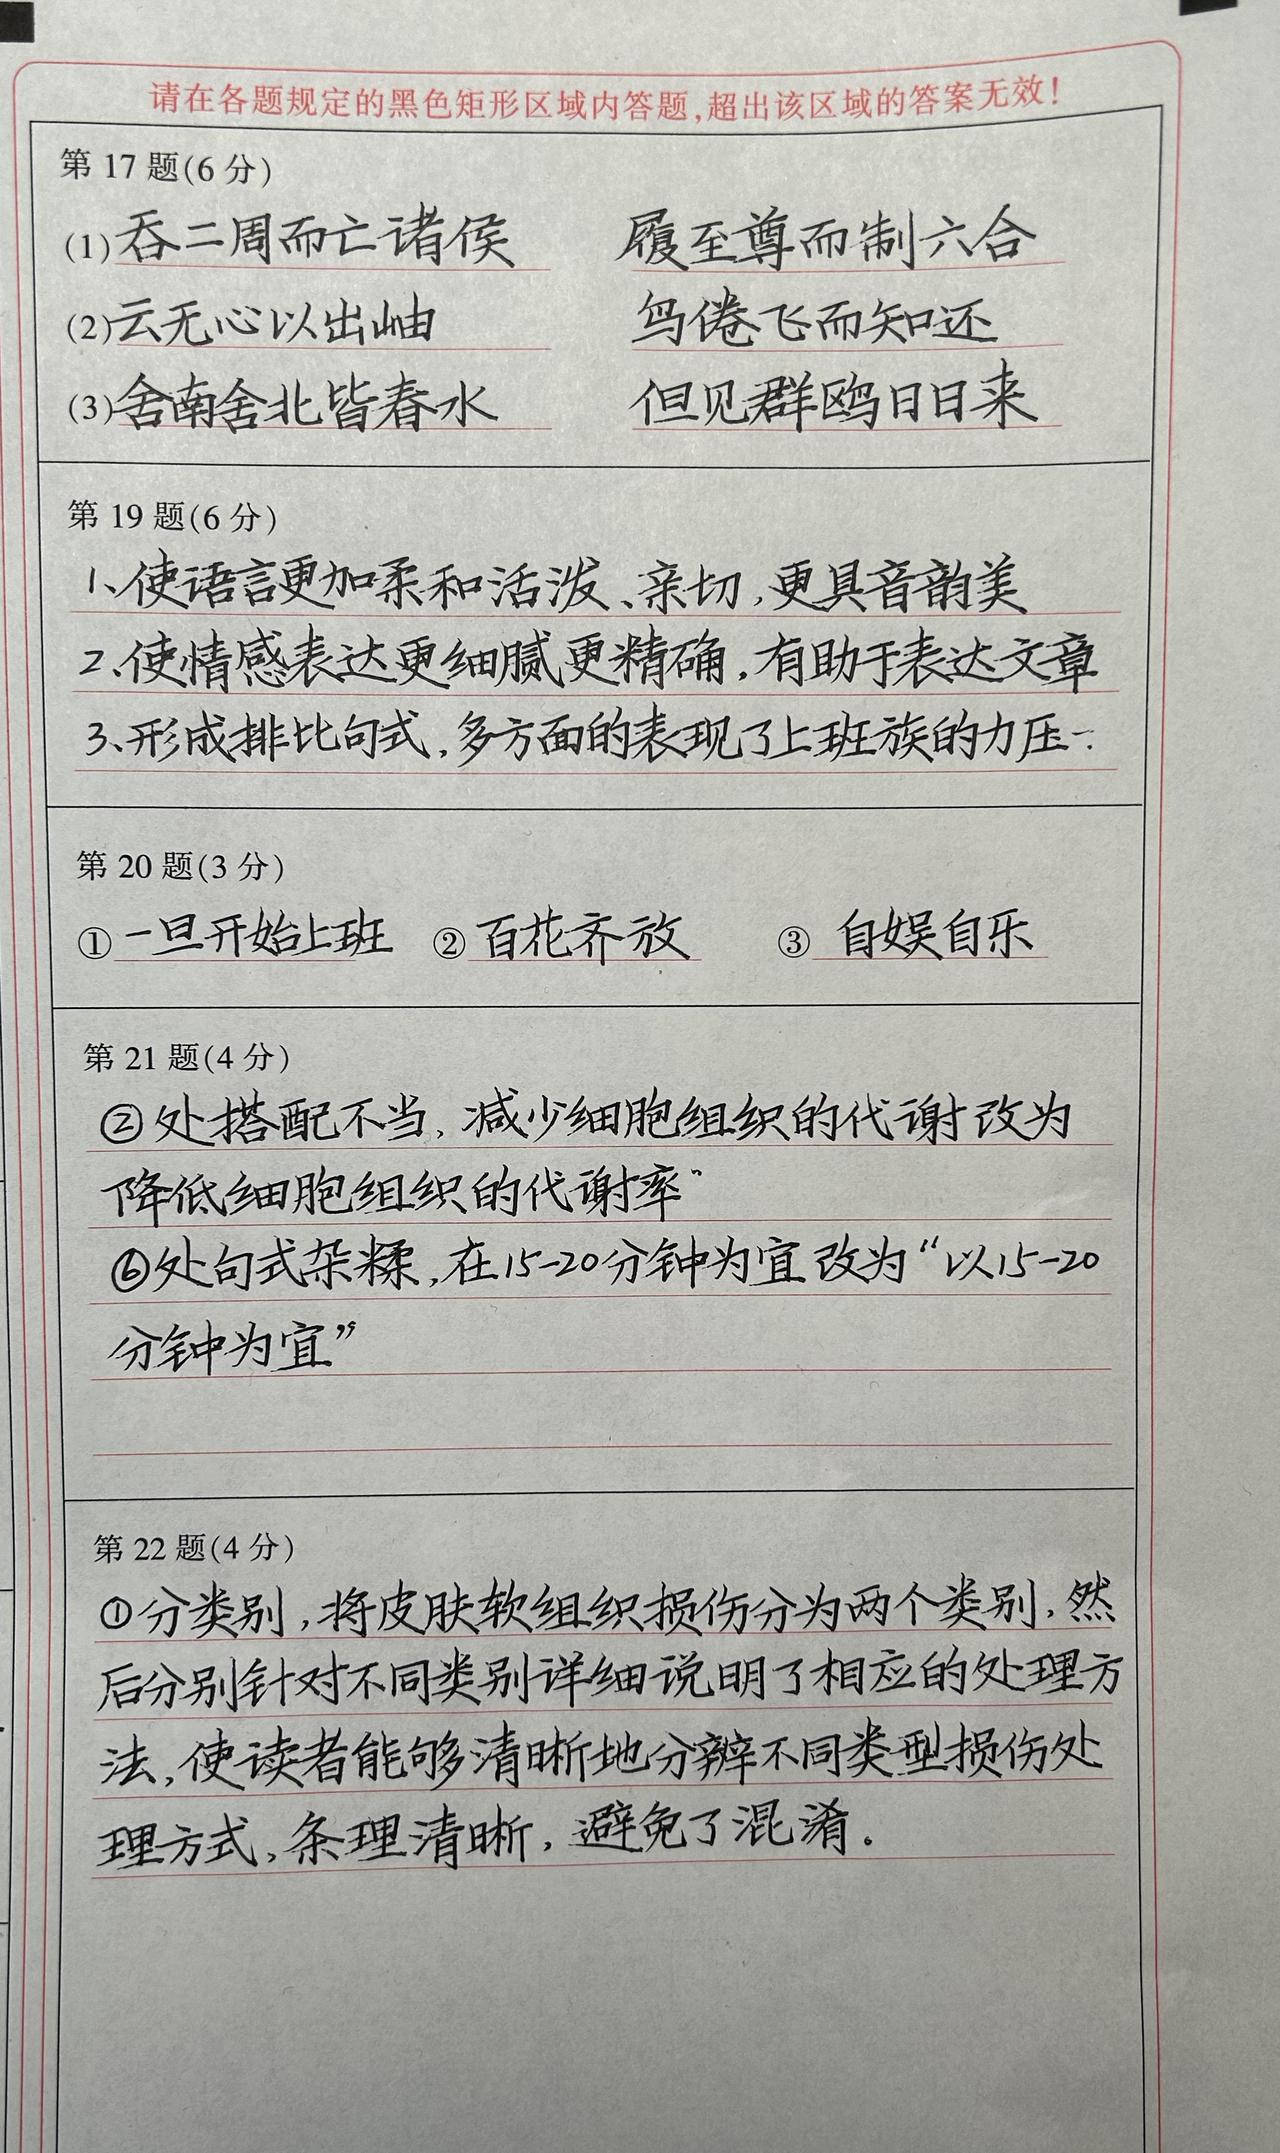 请在各题规定的黑色矩形区域内答题,超出该区域的答案无效!
第 17 题(6 分)
(1)吞二周而亡诸侯 履至尊而制六合
(2)云无心以出岫 鸟倦飞而知还
(3)舍南舍北皆春水 但见群鸥日日来
第 19 题(6 分)
1、使语言更加柔和活泼、亲切,更具音韵美
2、使情感表达更细腻更精确,有助于表达文章
3、形成排比句式,多方面的表现了上班族的力压
第 20 题(3 分)
①一旦开始上班 ②百花齐放 ③ 自娱自乐
第 21 题(4 分)
②处搭配不当,减少细胞组织的代谢改为
降低细胞组织的代谢率"
⑥处句式杂糅,在15-20分钟为宜改为“以15-20
分钟为宜”
第 22 题(4 分)
①分类别,将皮肤软组织损伤分为两个类别,然
后分别针对不同类别详细说明了相应的处理方
法,使读者能够清晰地分辨不同类型损伤处
理方式,条理清晰,避免了混淆。